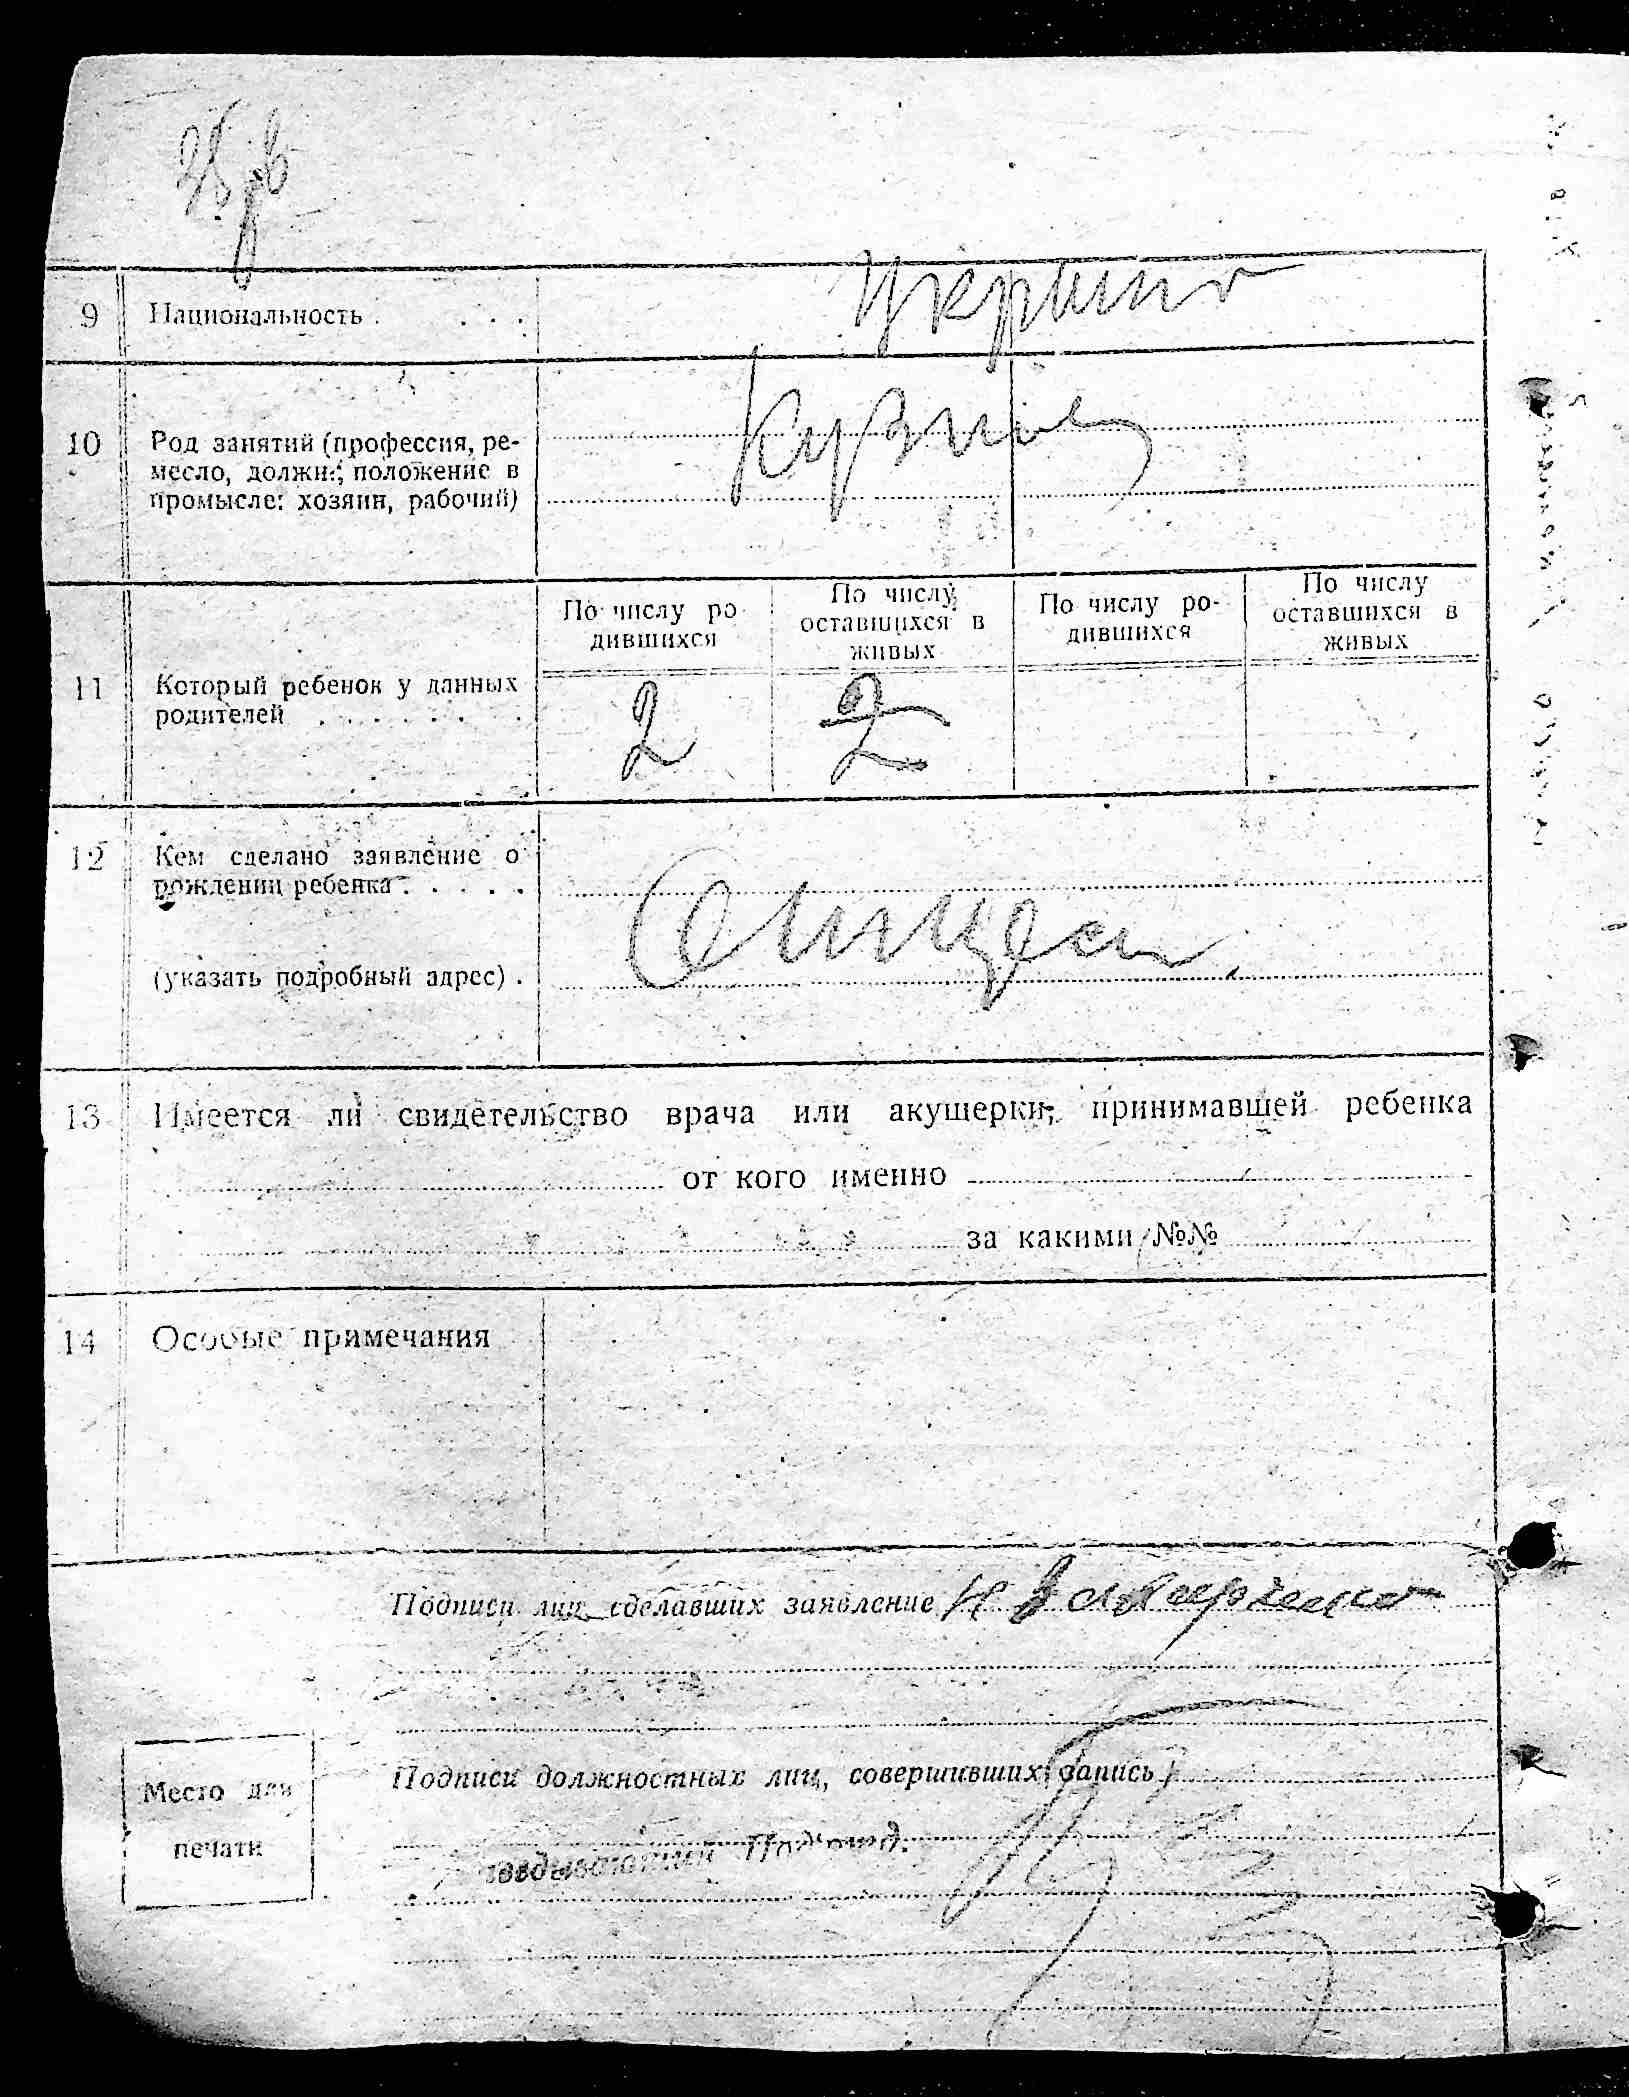 9 Национальность . . . . Украин
10 Род занятий (профессия, ре-
месло, должн., положение в
промысле: хозяин, рабочий)
Кузнец
По числу ро-
дившихся
По числу
оставшихся в
живых
По числу ро-
дившихся
По числу
оставшихся в
живых
11 Который ребенок у данных
родителей . . . . . . .
2 2
12 Кем сделано заявление о
рождении ребенка . . . . .
(указать подробный адрес) .
Отцем
13 Имеется ли свидетельство врача или акушерки, принимавшей ребенка
от кого именно
за какими №№
14 Особые примечания
Подписи лиц сделавших заявление
Подписи должностных лиц, совершивших запись
Место для
печати